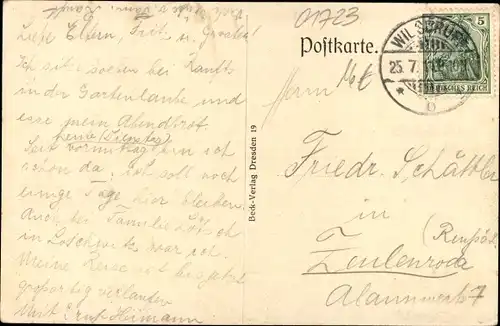 Liebe Eltern, Frit u. Großel
Ich sitze soeben bei Raufts
in der Gartenlaube und
esse mein Abendbrot.
heute (Dienstag)
Seit vormittag bin ich
schon da, ich soll noch
einige Tage hier bleiben.
Auch bei Familie Lösch
in Loschwitz war ich.
Meine Reise ist bis jetzt
großartig verlaufen
Mit Gruß Heimann
Beck-Verlag Dresden 19
01723
Postkarte.
WILSDRUFF
25.7.
5
DEUTSCHES REICH
Herrn
Friedr. Schättler
in
(Reuß ä.L.)
Zeulenroda
Alaunwerk 7